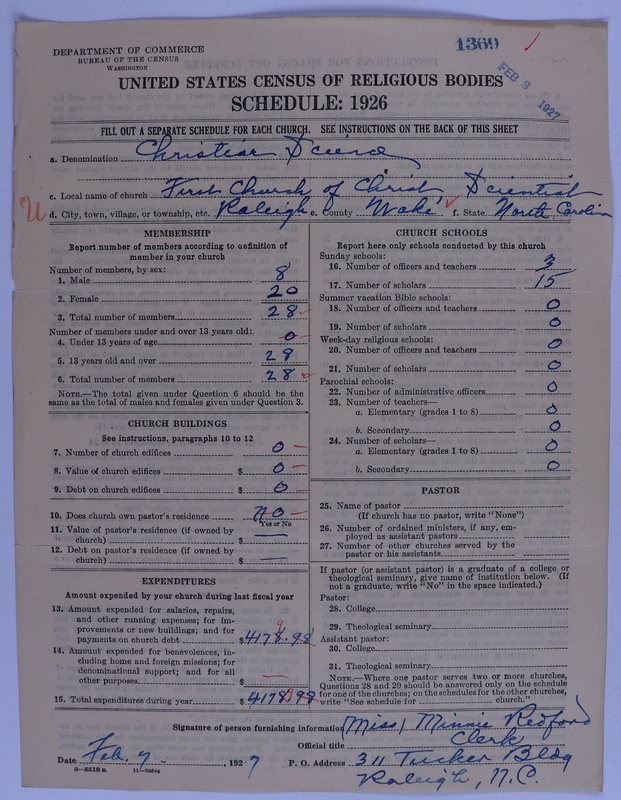 1369
FEB 8 1927
DEPARTMENT OF COMMERCE
BUREAU OF THE CENSUS
WASHINGTON
UNITED STATES CENSUS OF RELIGIOUS BODIES
SCHEDULE: 1926
FILL OUT A SEPARATE SCHEDULE FOR EACH CHURCH. SEE INSTRUCTIONS ON THE BACK OF THIS SHEET
a. Denomination Christian Science
c. Local name of church First Church of Christ Scientist
d. City, town, village, or township, etc. Raleigh e. County Wake f. State North Carolina
MEMBERSHIP
Report number of members according to definition of
member in your church
Number of members, by sex:
1. Male 8
2. Female 20
3. Total number of members 28
Number of members under and over 13 years old:
4. Under 13 years of age 0
5. 13 years old and over 28
6. Total number of members 28
NOTE.—The total given under Question 6 should be
same as the total of males and females given under Question 3.
CHURCH BUILDINGS
See instructions, paragraphs 10 to 12
7. Number of church edifices 0
8. Value of church edifices $ 0
9. Debt on church edifices $ 0
10. Does church own pastor's residence No
Yes or No
11. Value of pastor's residence (if owned by
church) $ —
12. Debt on pastor's residence (if owned by
church) $ —
EXPENDITURES
Amount expended by your church during last fiscal year
13. Amount expended for salaries, repairs,
and other running expenses; for im-
provements or new buildings; and for
payments on church debt $ 4178.98
14. Amount expended for benevolences, in-
cluding home and foreign missions; for
denominational support; and for all
other purposes $ —
15. Total expenditures during year $ 4178.98
CHURCH SCHOOLS
Report here only schools conducted by this church
Sunday schools:
16. Number of officers and teachers 3
17. Number of scholars 15
Summer vacation Bible schools:
18. Number of officers and teachers 0
19. Number of scholars 0
Week-day religious schools:
20. Number of officers and teachers 0
21. Number of scholars 0
Parochial schools:
22. Number of administrative officers 0
23. Number of teachers—
a. Elementary (grades 1 to 8) 0
b. Secondary 0
24. Number of scholars—
a. Elementary (grades 1 to 8) 0
b. Secondary 0
PASTOR
25. Name of pastor
(If church has no pastor, write "None")
26. Number of ordained ministers, if any, em-
ployed as assistant pastors
27. Number of other churches served by the
pastor or his assistants
If pastor (or assistant pastor) is a graduate of a college or
theological seminary, give name of institution below. (If
not a graduate, write "No" in the space indicated.)
Pastor:
28. College
29. Theological seminary
Assistant pastor:
30. College
31. Theological seminary
NOTE.—Where one pastor serves two or more churches,
Questions 28 and 29 should be answered only on the schedule
for one of the churches; on the schedules for the other churches,
write "See schedule for church."
Signature of person furnishing information Miss Minnie Redford
Official title Clerk
Date Feb. 7, 1927 P. O. Address 311 Tucker Bldg
Raleigh, N.C.
8—5518a 11—9051a